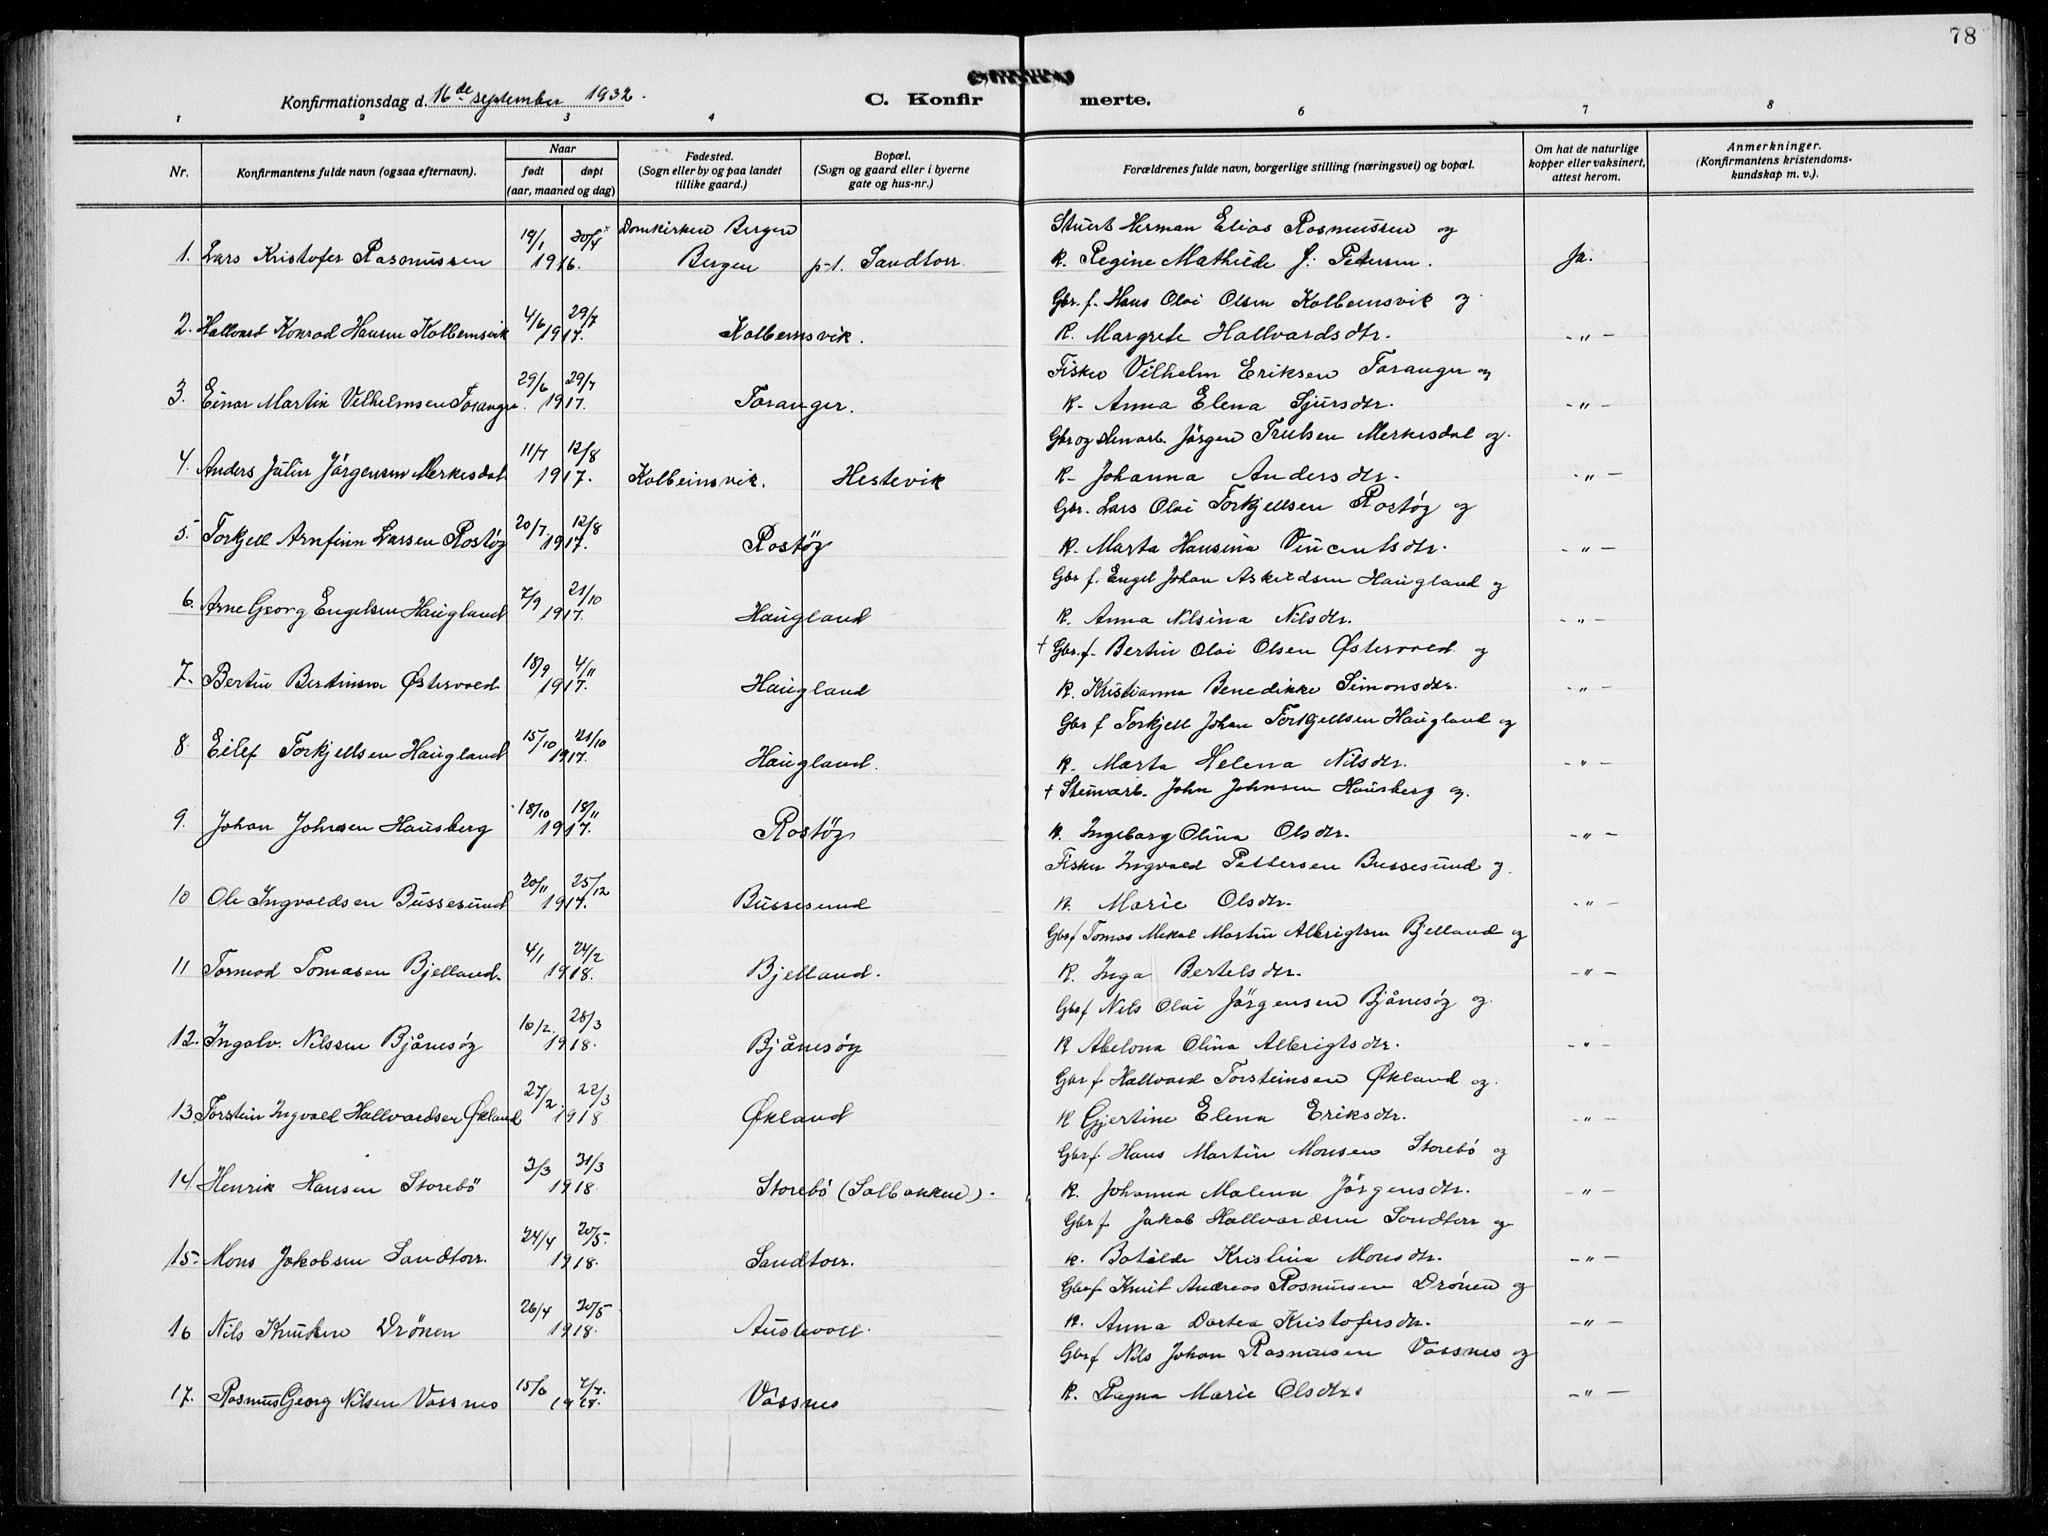 78
Konfirmationsdag d. 16de september 1932.
C. Konfirmerte.
1 2 3 4 6 7 8
Nr.
Konfirmantens fulde navn (ogsaa efternavn).
Naar
født døpt
(aar, maaned og dag)
Fødested.
(Sogn eller by og paa landet
tillike gaard.)
Bopæl.
(Sogn og gaard eller i byerne
gate og hus-nr.)
Forældrenes fulde navn, borgerlige stilling (næringsvei) og bopæl.
Om hat de naturlige
kopper eller vaksinert,
attest herom.
Anmerkninger.
(Konfirmantens kristendoms-
kundskap m. v.).
19/1 30/4 Domkirken Bergen Stuert Herman Elias Rasmussen og
1. Lars Kristofer Rasmussen 1916. Bergen p.t. Sandtorr K. Regine Mathilde f: Petersen. Ja.
4/6 29/7 Gbr. f. Hans Olai Olsen Kolbeinsvik og
2. Hallvard Konrad Hansen Kolbeinsvik 1917. Kolbeinsvik. K. Margrete Hallvardsdtr. -"-
29/6 29/7 Fisker Vilhelm Eriksen Toranger og
3. Einar Martin Vilhelmsen Toranger. 1917. Toranger. K. Anna Elena Sjursdtr. -"-
11/7 12/8 Gbr og stenarb. Jörgen Trulsen Merkesdal og
4. Anders Julin Jörgensen Merkesdal 1917. Kolbeinsvik. Hestevik K. Johanna Andersdtr. -"-
20/7 12/8 Gbr. Lars Olai Torkjellsen Rostøy og
5. Torkjell Arnfinn Larsen Rostøy 1917. Rostøy K. Marta Hansina Vincentsdtr. -"-
7/9 21/10 Gbr f. Engel Johan Askildsen Haugland og
6. Arne Georg Engelsen Haugland 1917. Haugland K. Anna Nilsina Nilsdtr. -"-
18/9 4/11 † Gbr. f. Bertin Olai Olsen Østervold og
7. Bertin Bertinsen Østervold 1917. Haugland K. Kristianna Benedikke Simonsdtr. -"-
15/10 21/10 Gbr f Torkjell Johan Torkjellsen Haugland og
8. Eilef Torkjellsen Haugland 1917. Haugland. K. Marta Helena Nilsdtr. -"-
18/10 18/11 † Stenarb. John Johnsen Hausberg og.
9. Johan Johnsen Hausberg 1917. Rostøy K. Ingeborg Olina Olsdtr. -"-
20/11 25/12 Fisker Ingvald Pettersen Bussesund og
10 Ole Ingvaldsen Bussesund 1917. Bussesund K. Marie Olsdtr. -"-
4/1 24/2 Gbr f Tomas Mikal Martin Albrigtsen Bjelland og
11 Tormod Tomasen Bjelland. 1918. Bjelland. K. Inga Bertelsdtr. -"-
10/2. 28/3 Gbr f Nils Olai Jörgensen Bjånesøy og
12. Ingolv. Nilssen Bjånesøy 1918. Bjånesøy K Abelona Olina Albrigtsdtr. -"-
27/2. 22/3 Gbr f Hallvard Torsteinsen Økland og.
13. Torstein Ingvald Hallvardsen Økland 1918 Økland K Gjertine Elena Eriksdtr. -"-
3/3 31/3 Gbr f. Hans Martin Monsen Storebö og
14 Henrik Hansen Storebö 1918. Storebö (Solbakken). K. Johanna Malena Jörgensdtr. -"-
24/4 20/5. Gbr f Jakob Hallvardsen Sandtorr og
15. Mons Jakobsen Sandtorr. 1918. Sandtorr. K. Botilde Kristina Monsdtr. -"-
26/4 20/5 Gbr f Knut Andreas Rasmussen Drönen og
16 Nils Knutsen Drönen 1918. Austevoll. K. Anna Dortea Kristofersdtr. -"-
15/6 7/7. Gbr f Nils Johan Rasmussen Vassnes og
17. Rasmus Georg Nilsen Vassnes 1918. Vassnes K. Ragna Marie Olsdtr. -"-